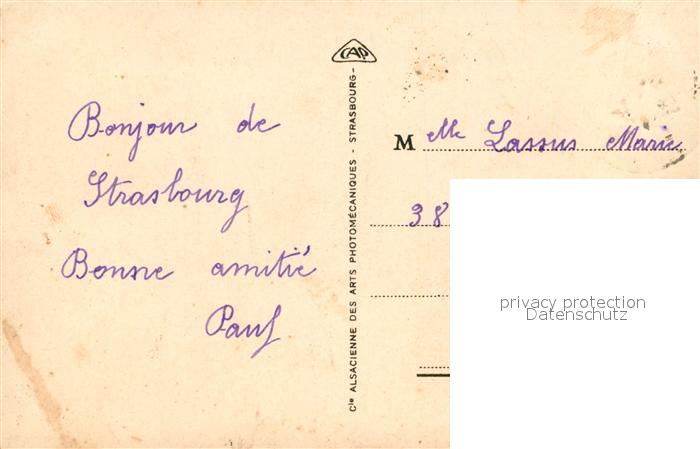 Bonjour de
Strasbourg
Bonne amitié
Paul
CAP
Cie ALSACIENNE DES ARTS PHOTOMÉCANIQUES - STRASBOURG -
Melle Lassus Marie
38
privacy protection
Datenschutz